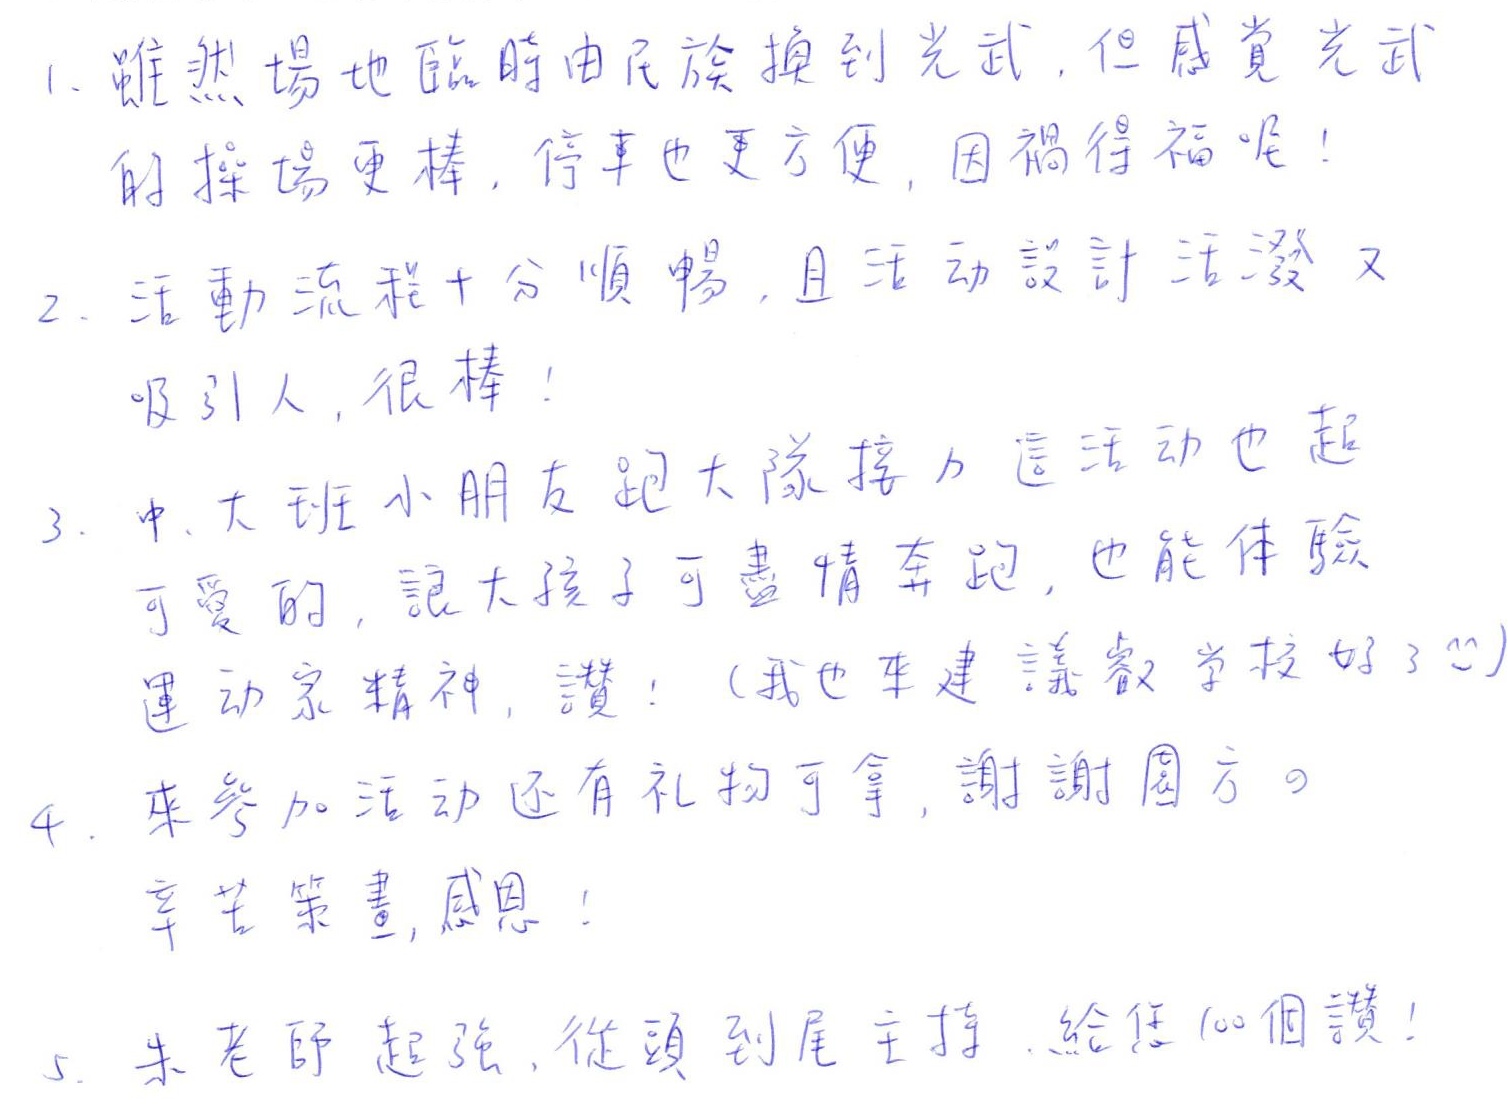 1、雖然場地臨時由民族換到光武，但感覺光武
的操場更棒，停車也更方便，因禍得福呢！
2. 活動流程十分順暢，且活动設計活潑又
吸引人，很棒！
3. 中、大班小朋友跑大隊接力這活动也超
可愛的，讓大孩子可盡情奔跑，也能体驗
運动家精神，讚！（我也來建議叡学校好了）
4. 來參加活动还有礼物可拿，謝謝園方。
辛苦策畫，感恩！
5. 朱老師超強，從頭到尾主持，給恁100個讚！